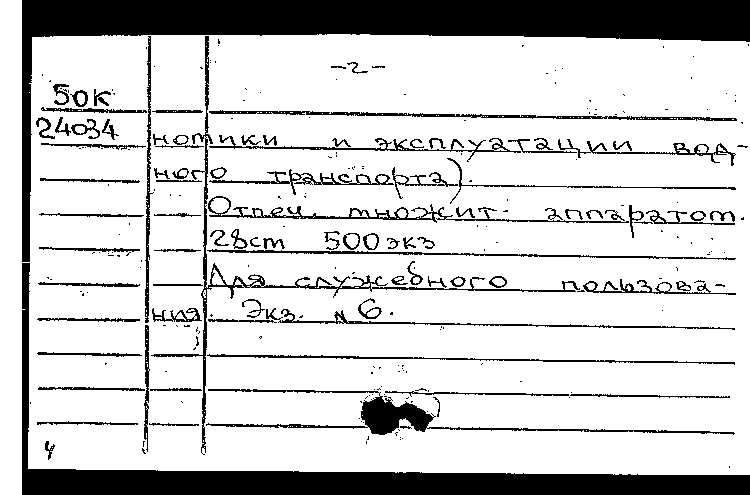 -2-
50К
24034
номики и эксплуатации вод-
ного транспорта).
Отпеч. множит. аппаратом.
28 ст 500 экз
Для служебного пользова-
ния. Экз. № 6.
4